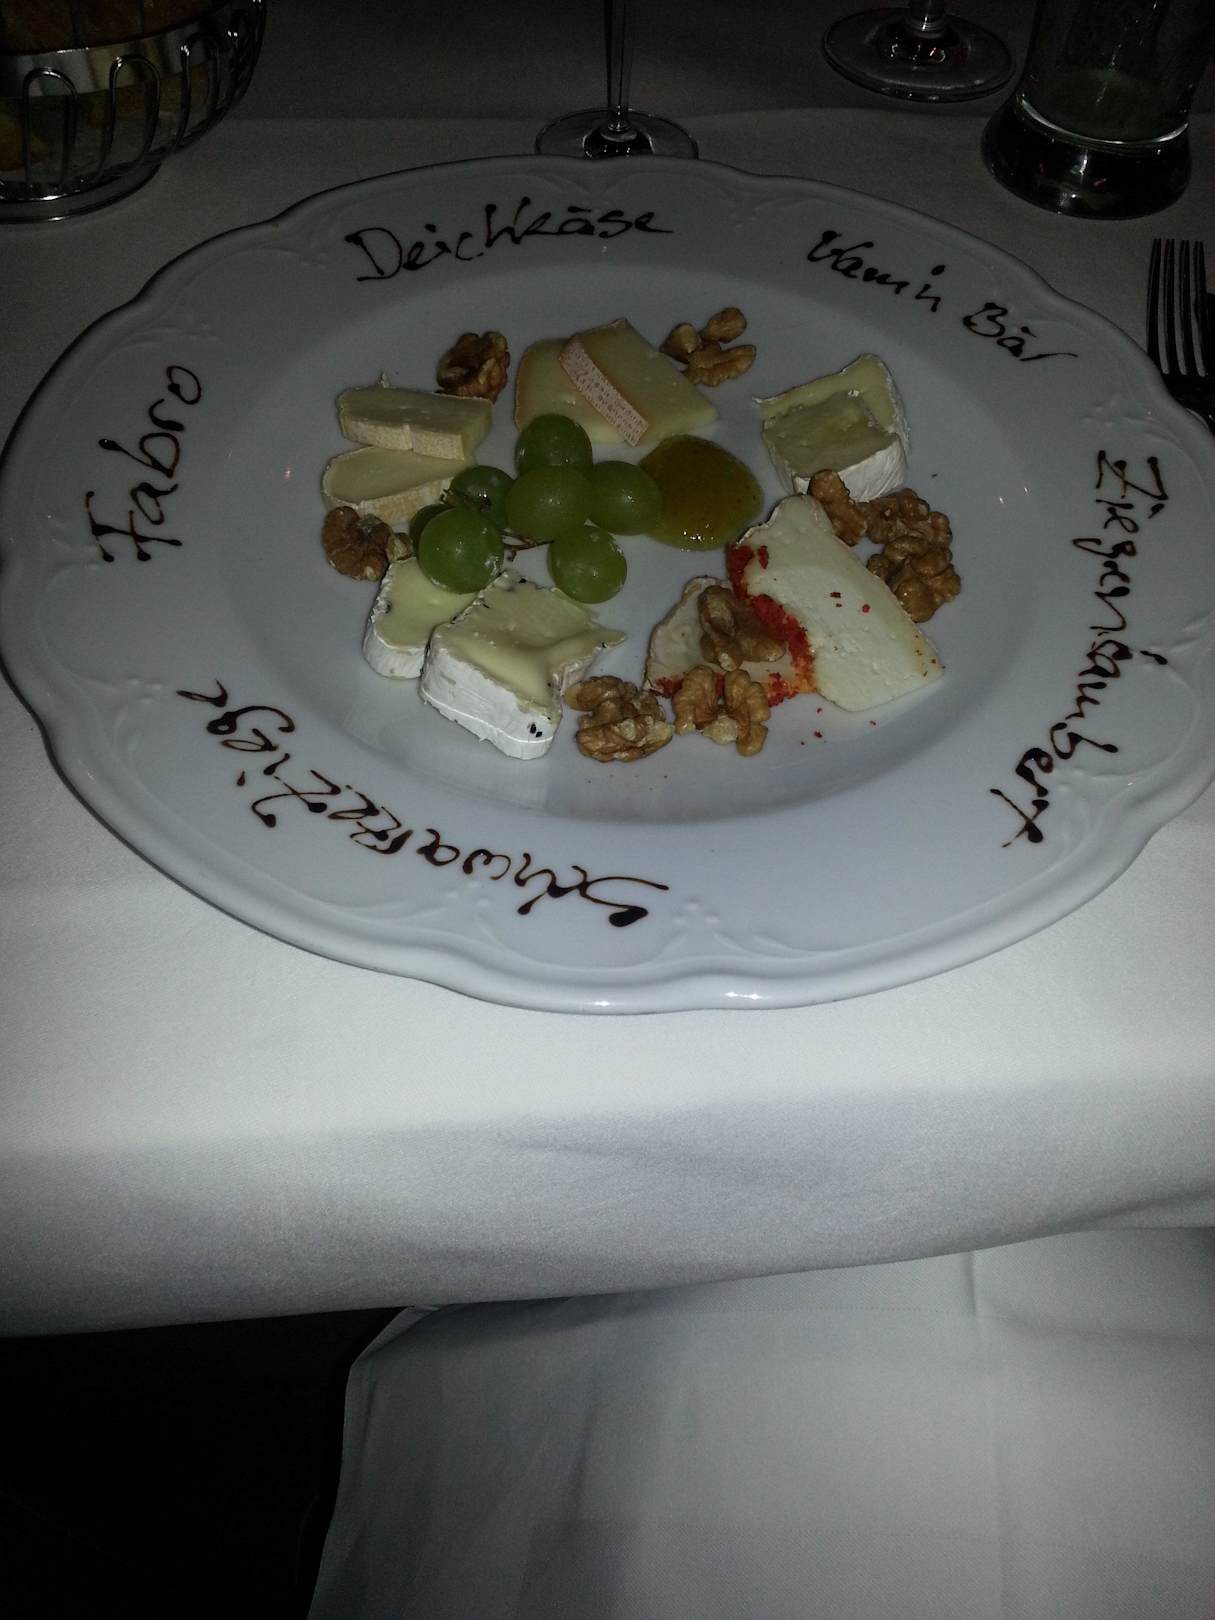 Deichkäse
Vam'n Bâl
Ziegencambert
Schwarze Ziege
Fabro